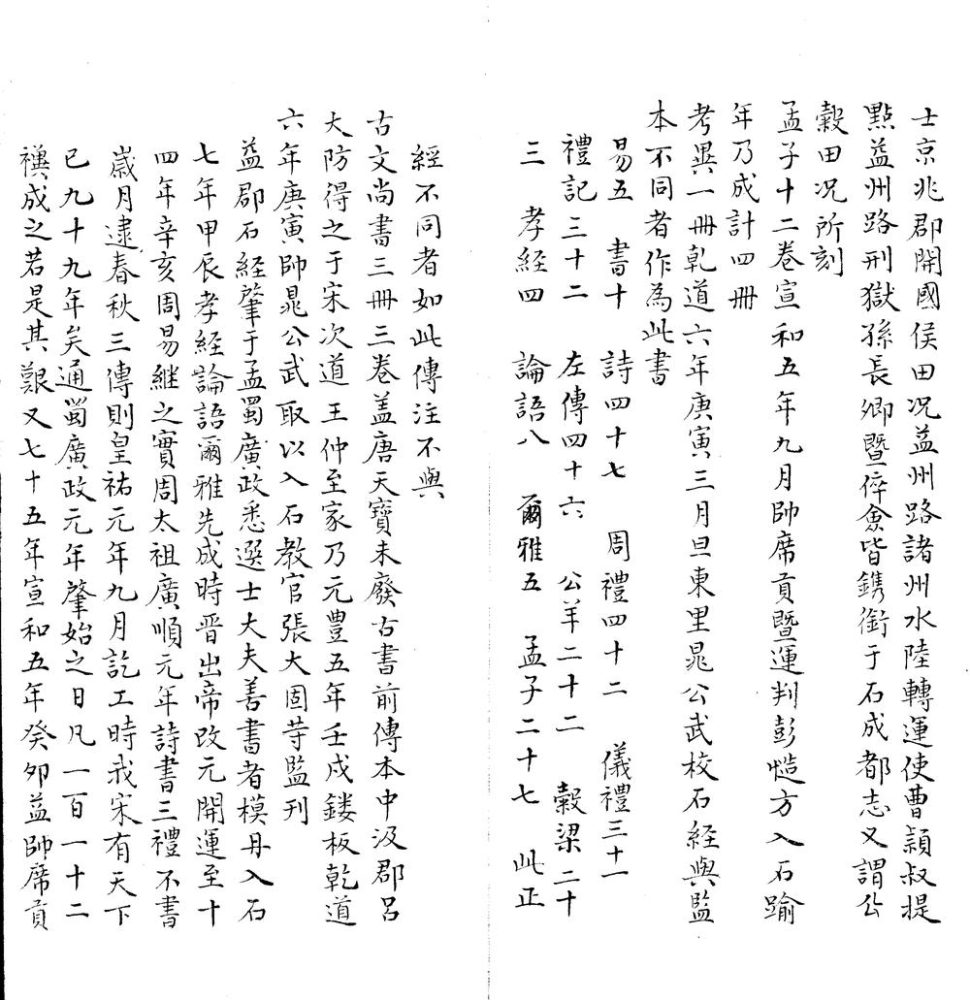 士京兆郡開國侯田况益州路諸州水陸轉運使曹穎叔提
點益州路刑獄孫長卿暨倅僉皆鐫銜于石成都志又謂公
穀田况所刻
孟子十二卷宣和五年九月帥席貢暨運判彭慥方入石踰
年乃成計四冊
考異一冊乹道六年庚寅三月旦東里晁公武校石經與監
本不同者作為此書
易五 書十 詩四十七 周禮四十二 儀禮三十一
禮記三十二 左傳四十六 公羊二十二 穀梁二十
三 孝経四 論語八 爾雅五 孟子二十七 此正
經不同者如此傳注不與
古文尚書三冊三卷盖唐天寶未廢古書前傳本中汲郡呂
大防得之于宋次道王仲至家乃元豊五年壬戌鏤板乾道
六年庚寅帥晁公武取以入石教官張大固䓁監刊
益郡石經肇于孟蜀廣政悉選士大夫善書者模丹入石
七年甲辰孝經論語爾雅先成時晋出帝改元開運至十
四年辛亥周易継之實周太祖廣順元年詩書三禮不書
歲月逮春秋三傳則皇祐元年九月訖工時我宋有天下
已九十九年矣通蜀廣政元年肇始之日凡一百一十二
禩成之若是其艱又七十五年宣和五年癸夘益帥席貢